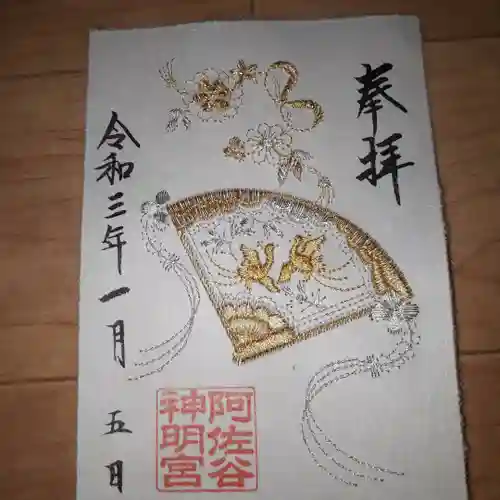 奉拝
阿佐谷
神明宮
令和三年一月五日